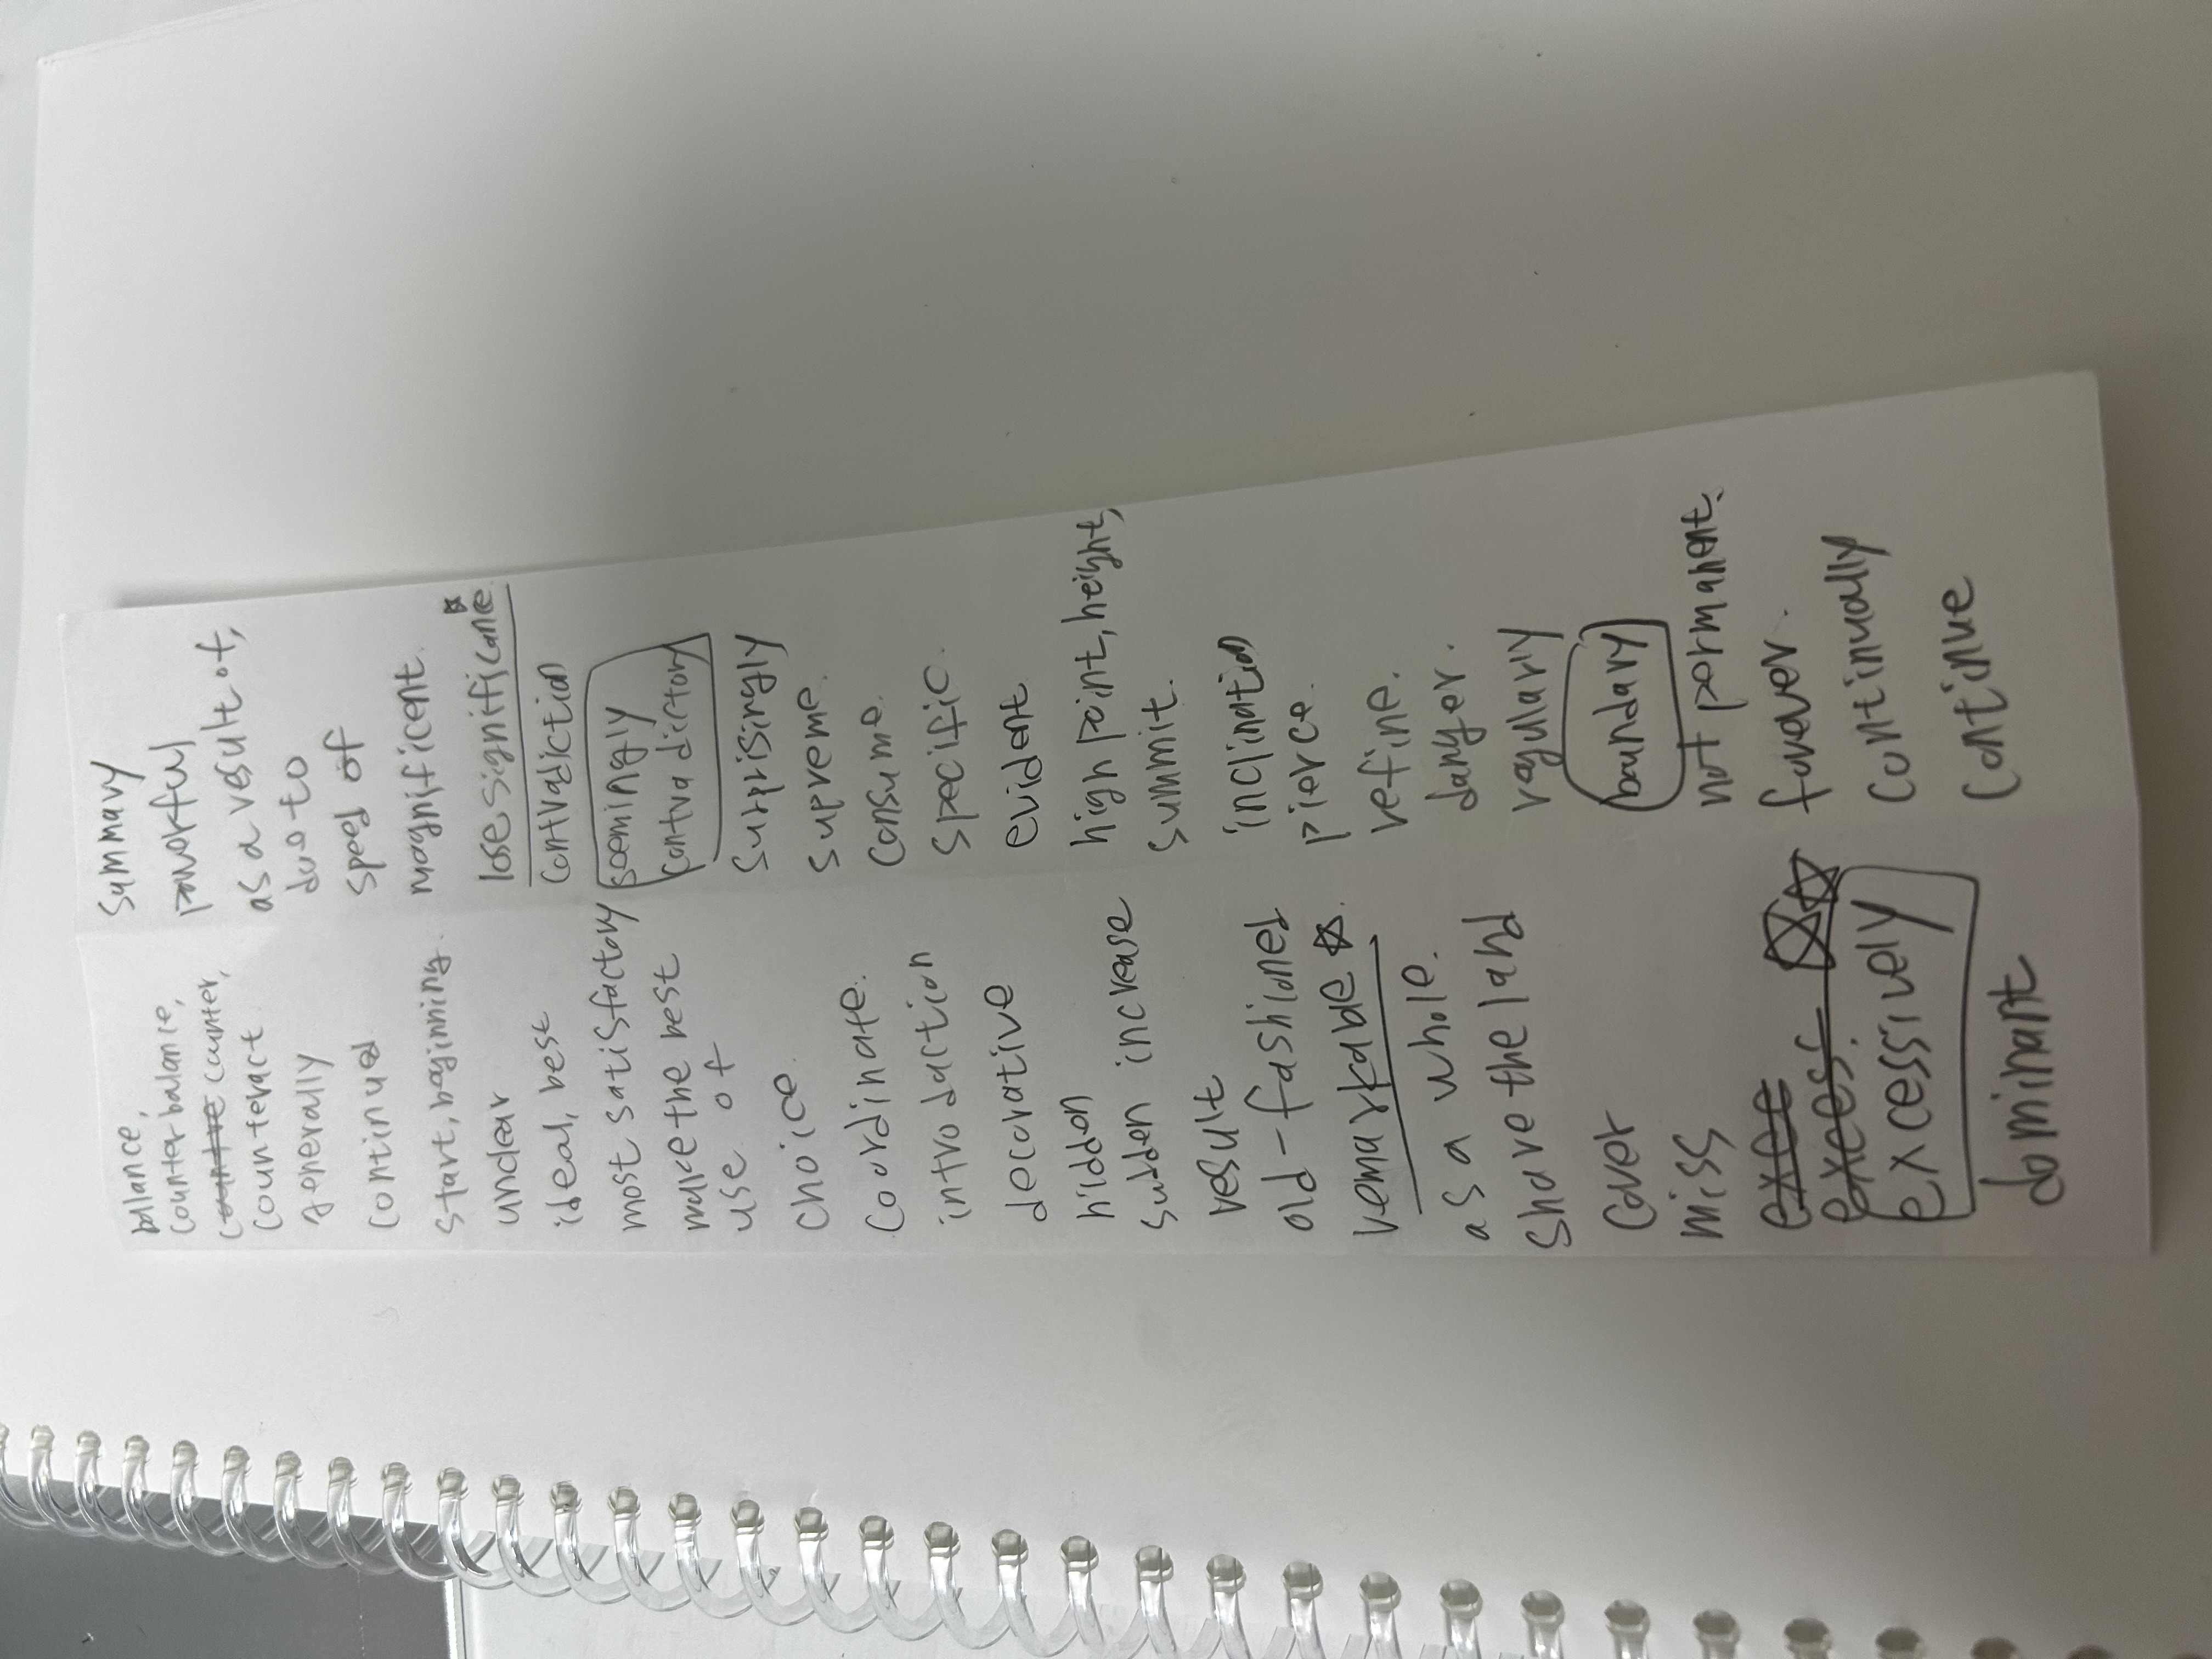 balance,
counterbalance,
countre counter,
counteract
generally
continued
start, beginning.
unclear
ideal, best
most satisfactory
make the best
use of
choice.
coordinate.
introdaction
decorative
hidden
sudden increase
result
old-fashioned
remarkable ☆.
as a whole.
share the land
cover
miss
exce
exces
excessively
dominant
summary
powerful
as a result of,
due to
speed of
magnificent.
lose significane
contradiction
seemingly
contradictory
surprisingly
supreme.
consume.
specific.
evident
high point, height,
summit.
inclination
pierce.
refine.
danger.
regularly
boundary
not permanent.
forever.
continually
continue